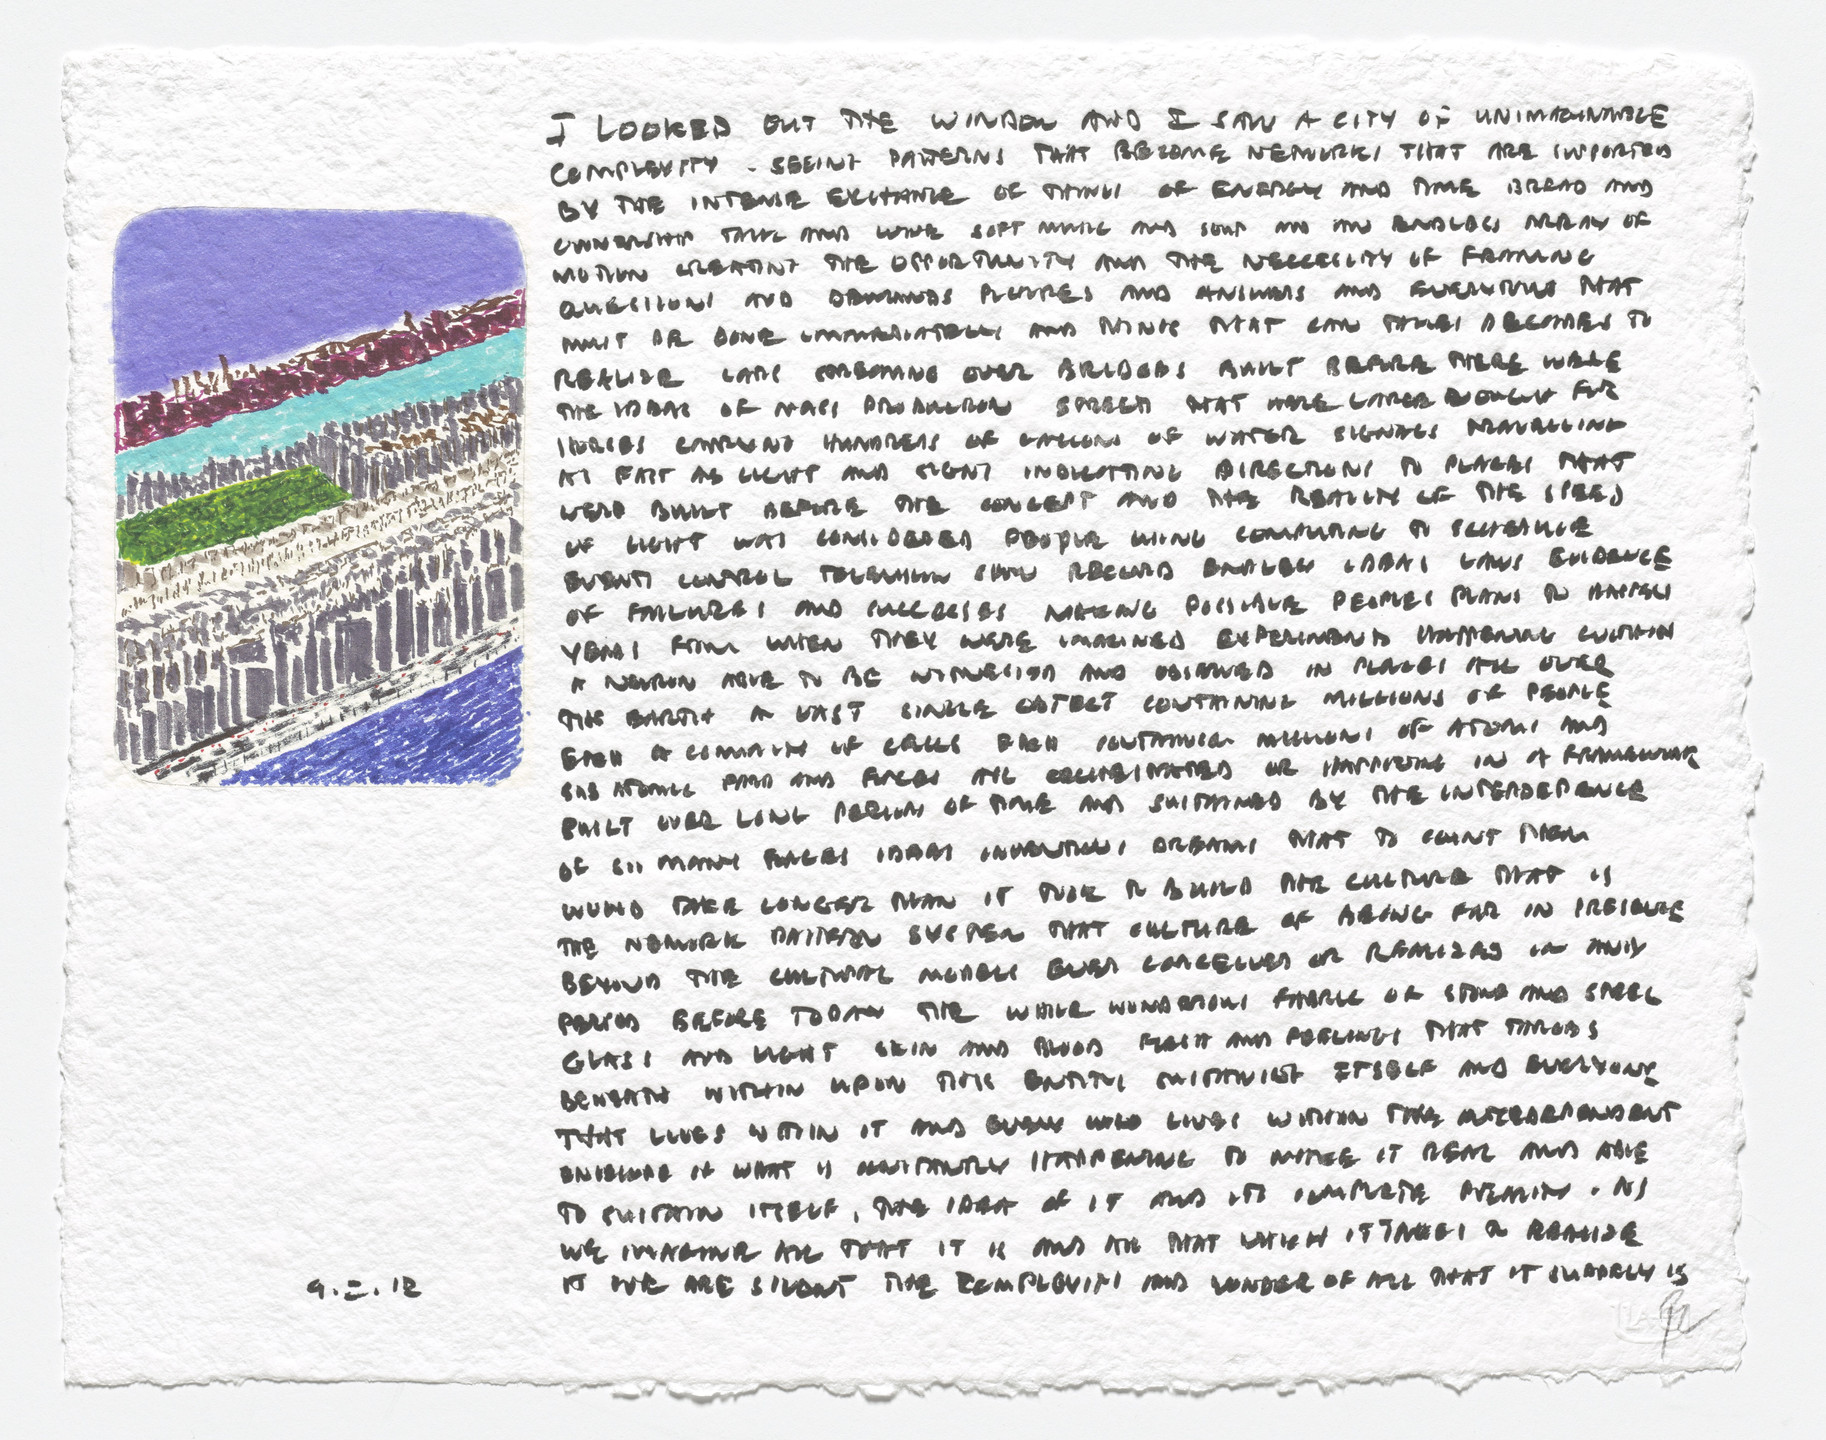 I LOOKED OUT THE WINDOW AND I SAW A CITY OF UNIMAGINABLE
COMPLEXITY . SEEING PATTERNS THAT BECOME NETWORKS THAT ARE SUPPORTED
BY THE INTENSE EXCHANGE OF THINGS OF ENERGY AND TIME BREAD AND
OWNERSHIP TALK AND WINE SOFT MUSIC AND SOUP AND AN ENDLESS ARRAY OF
MOTION CREATING THE OPPORTUNITY AND THE NECESSITY OF FRAMING
QUESTIONS AND DEMANDS PICTURES AND ANSWERS AND THAT
MUST BE DONE IMMEDIATELY AND THINGS THAT CAN TAKE DECADES TO
REALIZE CARS OVER BRIDGES BUILT BEFORE THERE WERE
THE IDEAS OF MASS PRODUCTION STREETS THAT WERE LARGE ENOUGH FOR
HORSES CARRYING HUNDREDS OF GALLONS OF WATER SIGNALS TRAVELLING
AS FAST AS LIGHT AND SIGNS INDICATING DIRECTIONS TO PLACES THAT
WERE BUILT BEFORE THE CONCEPT AND THE REALITY OF THE SPEED
OF LIGHT WAS CONSIDERED PEOPLE USING COMPUTING TO SCHEDULE
EVENTS CONTROL TELEVISION SHOW RECORD ENDLESS IDEAS LAWS EVIDENCE
OF FAILURES AND SUCCESSES MAKING POSSIBLE PEOPLES PLANS TO HAPPEN
YEARS FROM WHEN THEY WERE IMAGINED EXPERIMENTS HAPPENING WITHIN
A NEURON ABLE TO BE WITNESSED AND OBSERVED IN PLACES ALL OVER
THE EARTH A VAST SINGLE OBJECT CONTAINING MILLIONS OF PEOPLE
EACH A OF CELLS EACH CONTAINING MILLIONS OF ATOMS AND
SUB ATOMIC AND FORCES ALL OR HAPPENING IN A FRAMEWORK
BUILT OVER LONG PERIODS OF TIME AND SUSTAINED BY THE INTERDEPENDENCE
OF SO MANY FORCES IDEAS INVENTIONS DREAMS THAT TO COUNT THEM
WOULD TAKE LONGER THAN IT TOOK TO BUILD THE CULTURE THAT IS
THE NETWORK PATTERN SYSTEM THAT CULTURE OF BEING FAR IN
BEYOND THE CULTURAL MODELS EVER CONCEIVED OR REALIZED IN ANY
PERIOD BEFORE TODAY THE WHOLE WONDROUS FABRIC OF STONE AND STEEL
GLASS AND LIGHT SKIN AND BLOOD FLESH AND FEELINGS THAT THROBS
BENEATH WITHIN UPON THIS ENTITY SUSTAINING ITSELF AND EVERYONE
THAT LIVES WITHIN IT AND EVERY WHO LIVES WITHIN THE INTERDEPENDENT
OF WHAT IS CONSTANTLY HAPPENING TO MAKE IT REAL AND ABLE
TO SUSTAIN ITSELF, THE IDEA OF IT AND ITS COMPLETE REALITY . AS
WE IMAGINE ALL THAT IT IS AND ALL THAT WHICH IT TAKES TO REALIZE
IT WE ARE SILENT THE COMPLEXITY AND WONDER OF ALL THAT IT SIMPLY IS
9.2.12